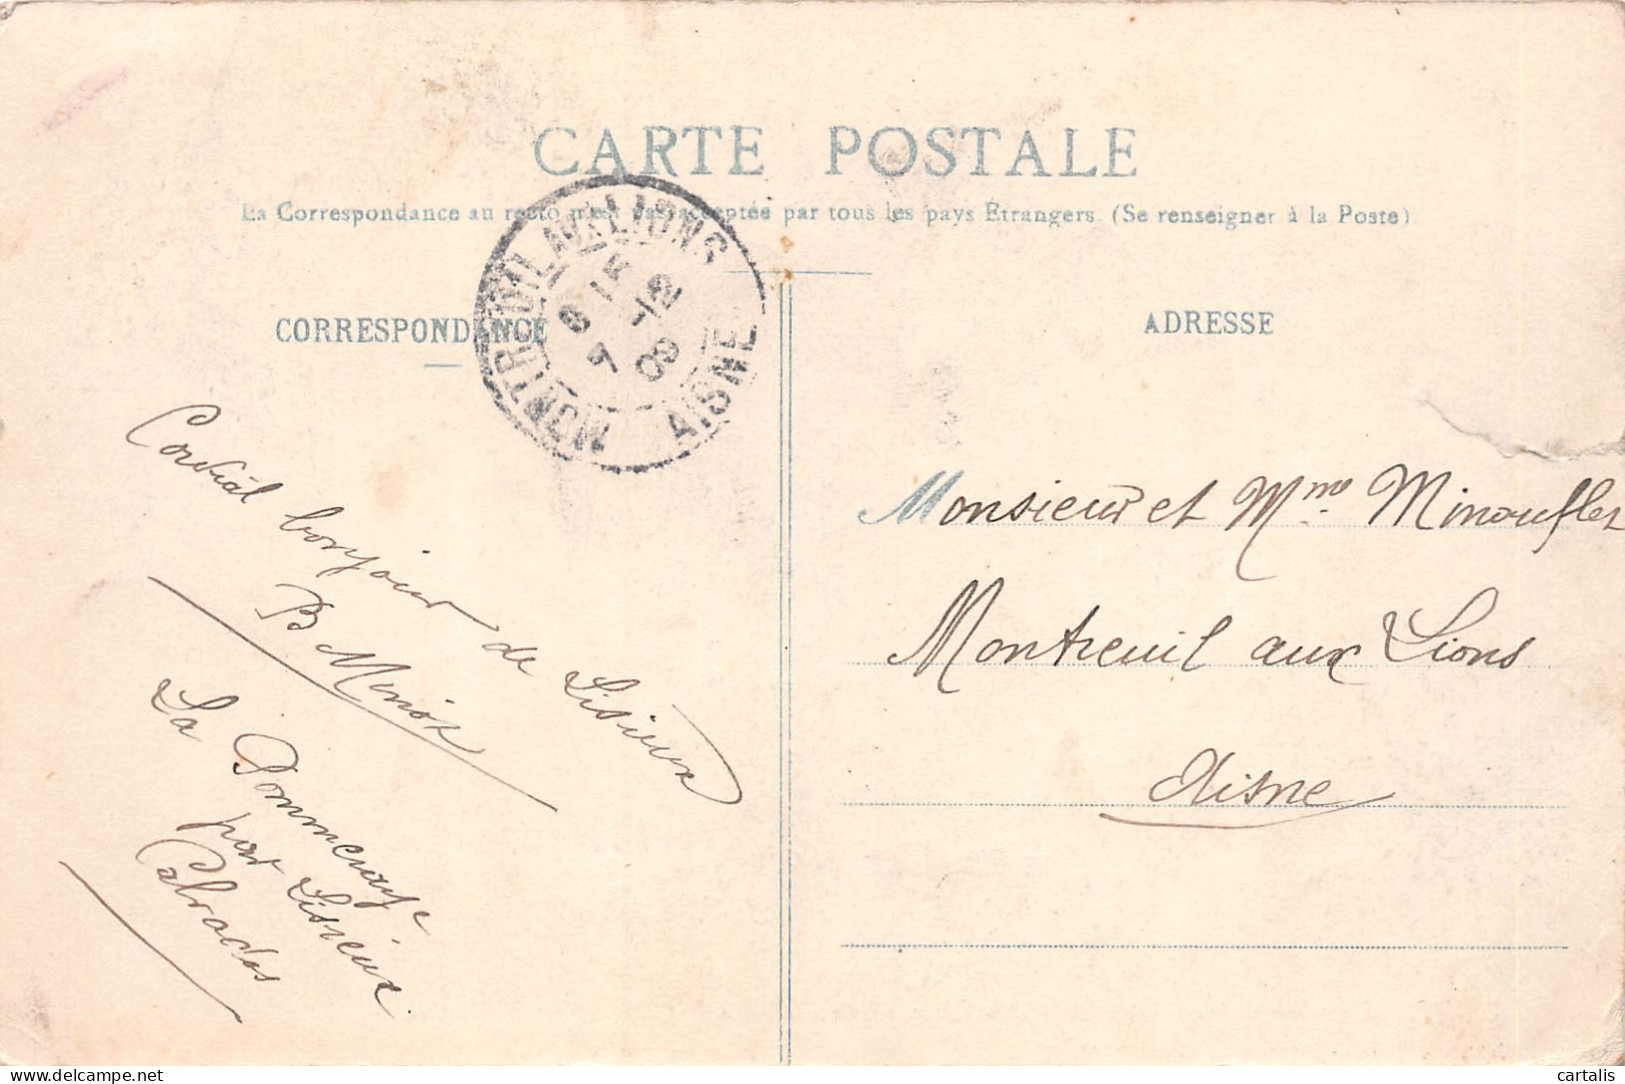 CARTE POSTALE
La Correspondance au recto n'est pas acceptée par tous les pays Étrangers (Se renseigner à la Poste)
CORRESPONDANCE
ADRESSE
MONTREUIL AUX LIONS
AISNE
8 15
7 -12
09
Cordial bonjour de Lisieux
B Minot
La Pommeraye
par Lisieux
Calvados
Monsieur et Mme Minouflet
Montreuil aux Lions
Aisne
cartalis